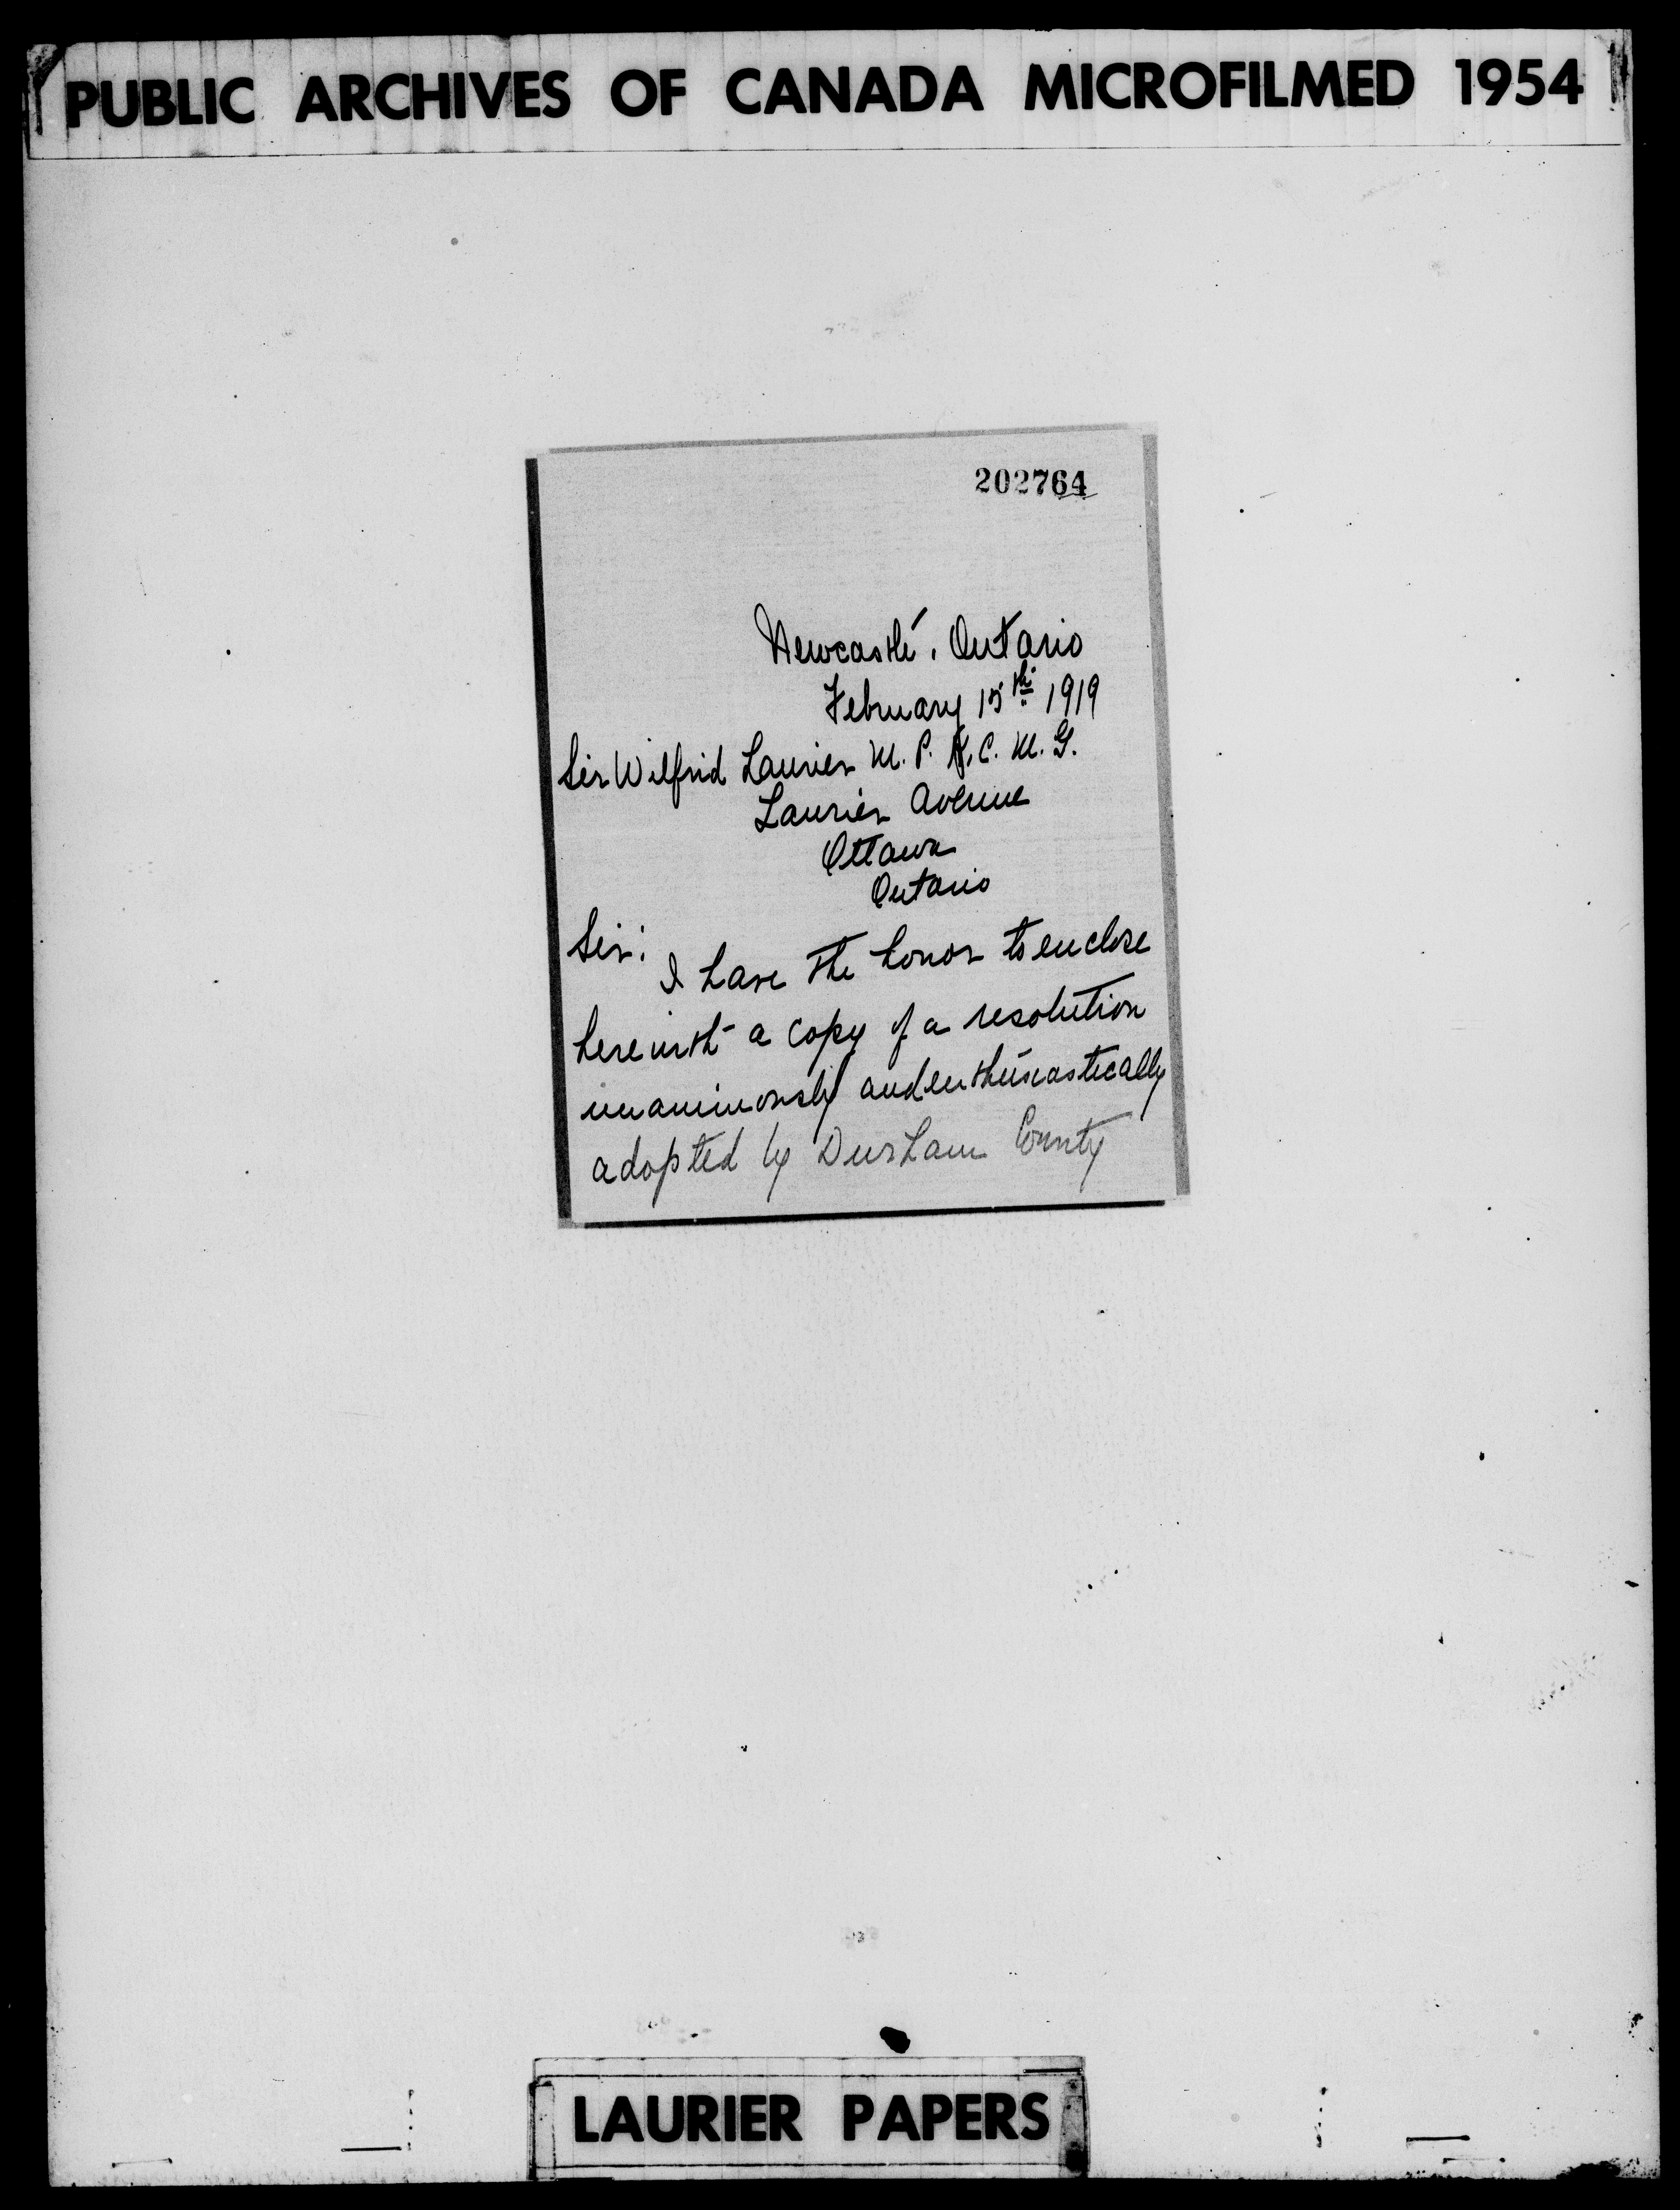 PUBLIC ARCHIVES OF CANADA MICROFILMED 1954
202764
Newcastle, Ontario
February 15th 1919
Sir Wilfrid Laurier M.P. K.C.M.G.
Laurier Avenue
Ottawa
Ontario
Sir:
I have the honor to enclose
herewith a copy of a resolution
unanimously and enthusiastically
adopted by Durham County
LAURIER PAPERS